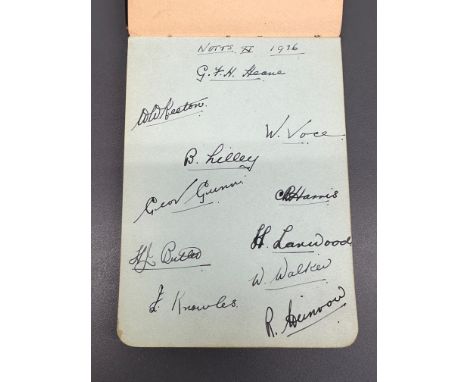 NOTTS. XI 1936
G. F. H. Heane
W W Keeton
W. Voce
B. Lilley
Geo V Gunn
C B Harris
H J Butler
H. Larwood
W. Walker
J. Knowles
R.